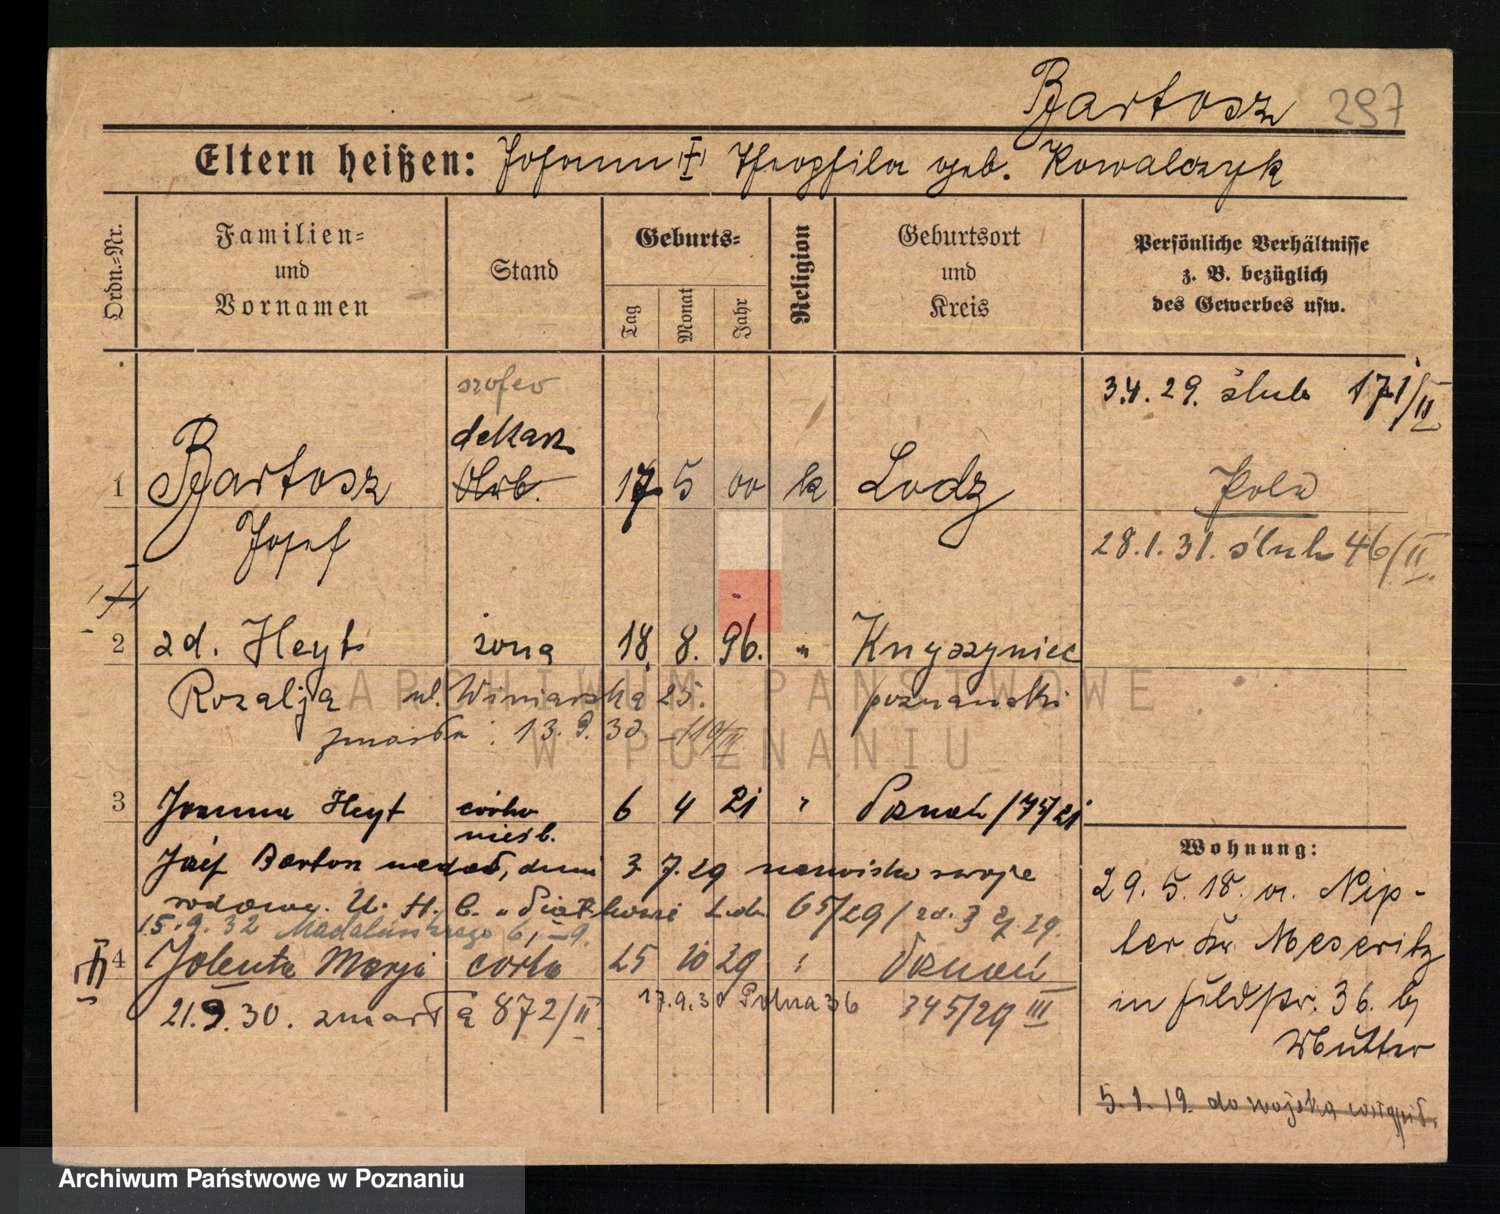 Bartosz 297
Eltern heißen: Johann (I) Theophila geb. Kowalczyk
Ordn.-Nr.
Familien- und Vornamen
Stand
Geburts-
Tag Monat Jahr
Religion
Geburtsort und Kreis
Persönliche Verhältnisse z. B. bezüglich des Gewerbes usw.
szofer
dekarz
1 Bartosz Arb. 17 5 00 k Lodz
Josef
3.4.29. ślub 171/II
Pole
28.1.31. ślub 46/II.
2 zd. Heyt żona 18. 8. 96. " Knyszyniec
Rozalja ul. Winiarska 25. poznański
zmarła: 13.9.30
3 Joanna Heyt córka 6 4 21 " Poznań /75/21
nieśl.
Józef Bartosz nadał, dnia 3.7.29 nazwisko swoje
rodowe. U. St. C. 65/29/
15.9.32
4 Jolenta Marja córka 25 10 29 " Poznań
21.9.30. zmarła 872/II 17.9.30 Polna 36 345/29 III
Wohnung:
29.5.18. v.
Meseritz
in Feldstr. 36. b/
Mutter
5.1.19. do wojska wstąpił.
ARCHIWUM PAŃSTWOWE
W POZNANIU
Archiwum Państwowe w Poznaniu